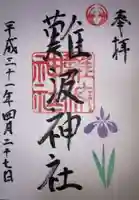 奉拝
難波神社
平成三十一年四月二十七日